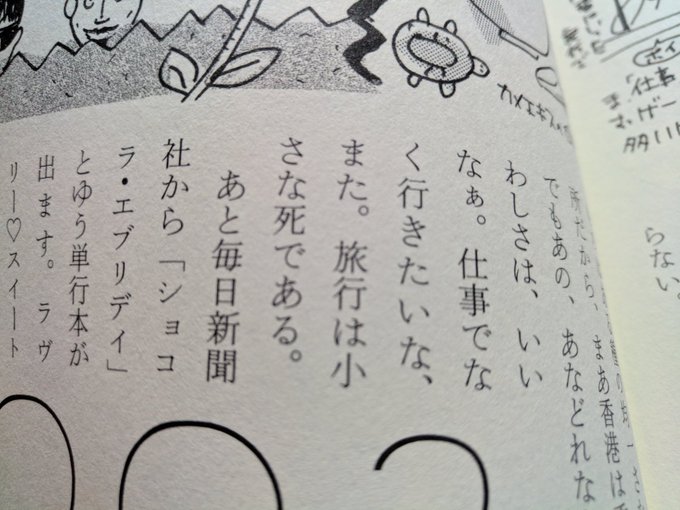 らない。
所だから、まあ香港は
でもあの、あなどれな
わしさは、いい
なぁ。仕事でな
く行きたいな、
また。旅行は小
さな死である。
あと毎日新聞
社から「ショコ
ラ・エブリデイ」
とゆう単行本が
出ます。ラヴ
リー♡スイート